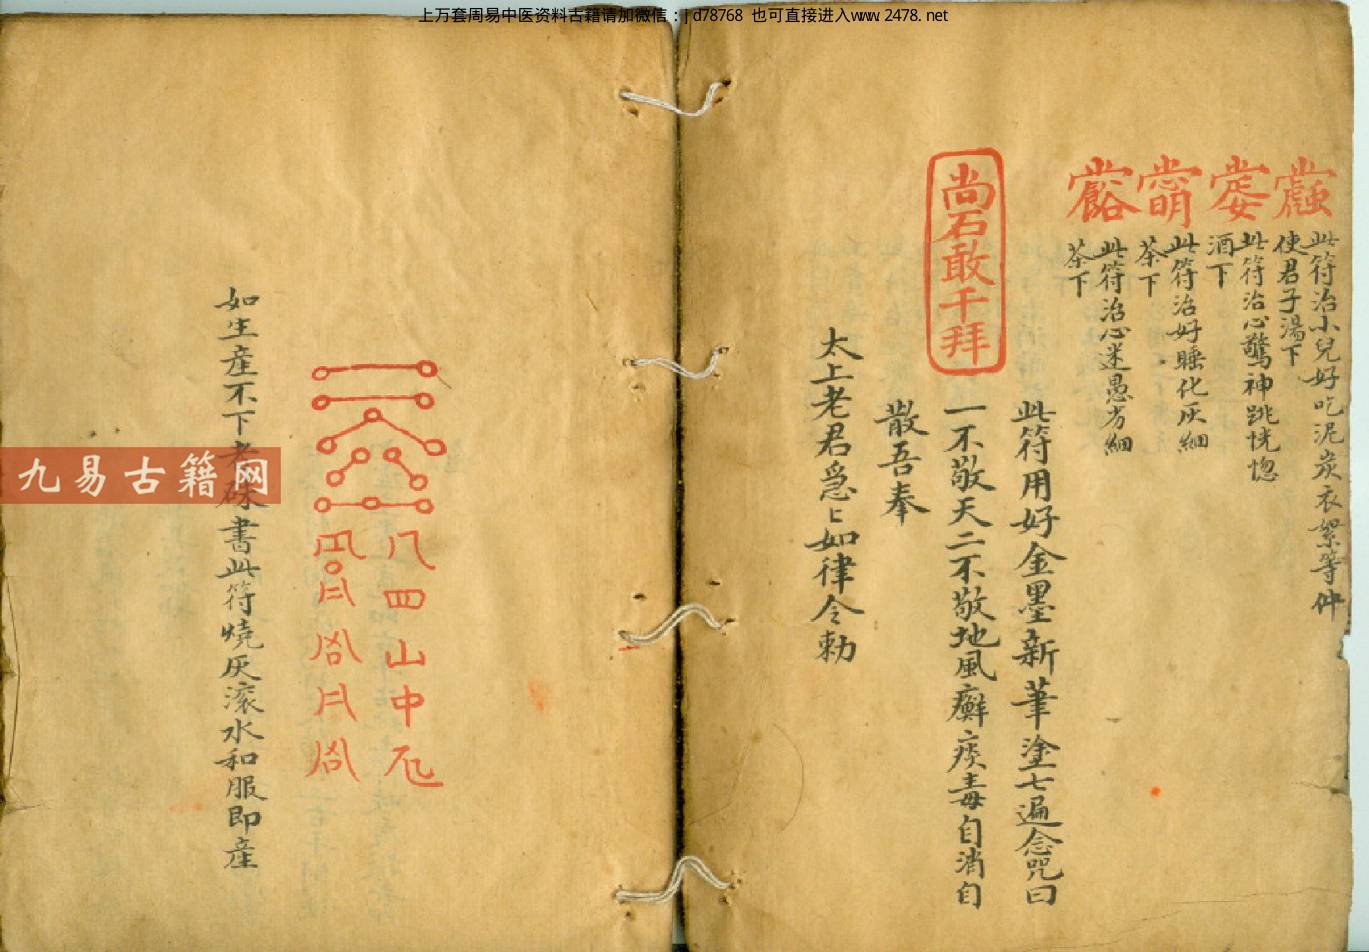 上万套周易中医资料古籍请加微信：jd78768 也可直接进入www.2478.net
此符治小兒好吃泥炭衣絮等件
使君子湯下
此符治心驚神跳恍惚
酒下
此符治好睡化灰細
茶下
此符治心迷愚方細
茶下
尚石敢千拜
此符用好金墨新筆塗七遍念咒曰
一不敬天二不敬地風癬痰毒自消自
散吾奉
太上老君急〻如律令勅
八四山中
如生產不下者硃書此符燒灰滚水和服即產
九易古籍网